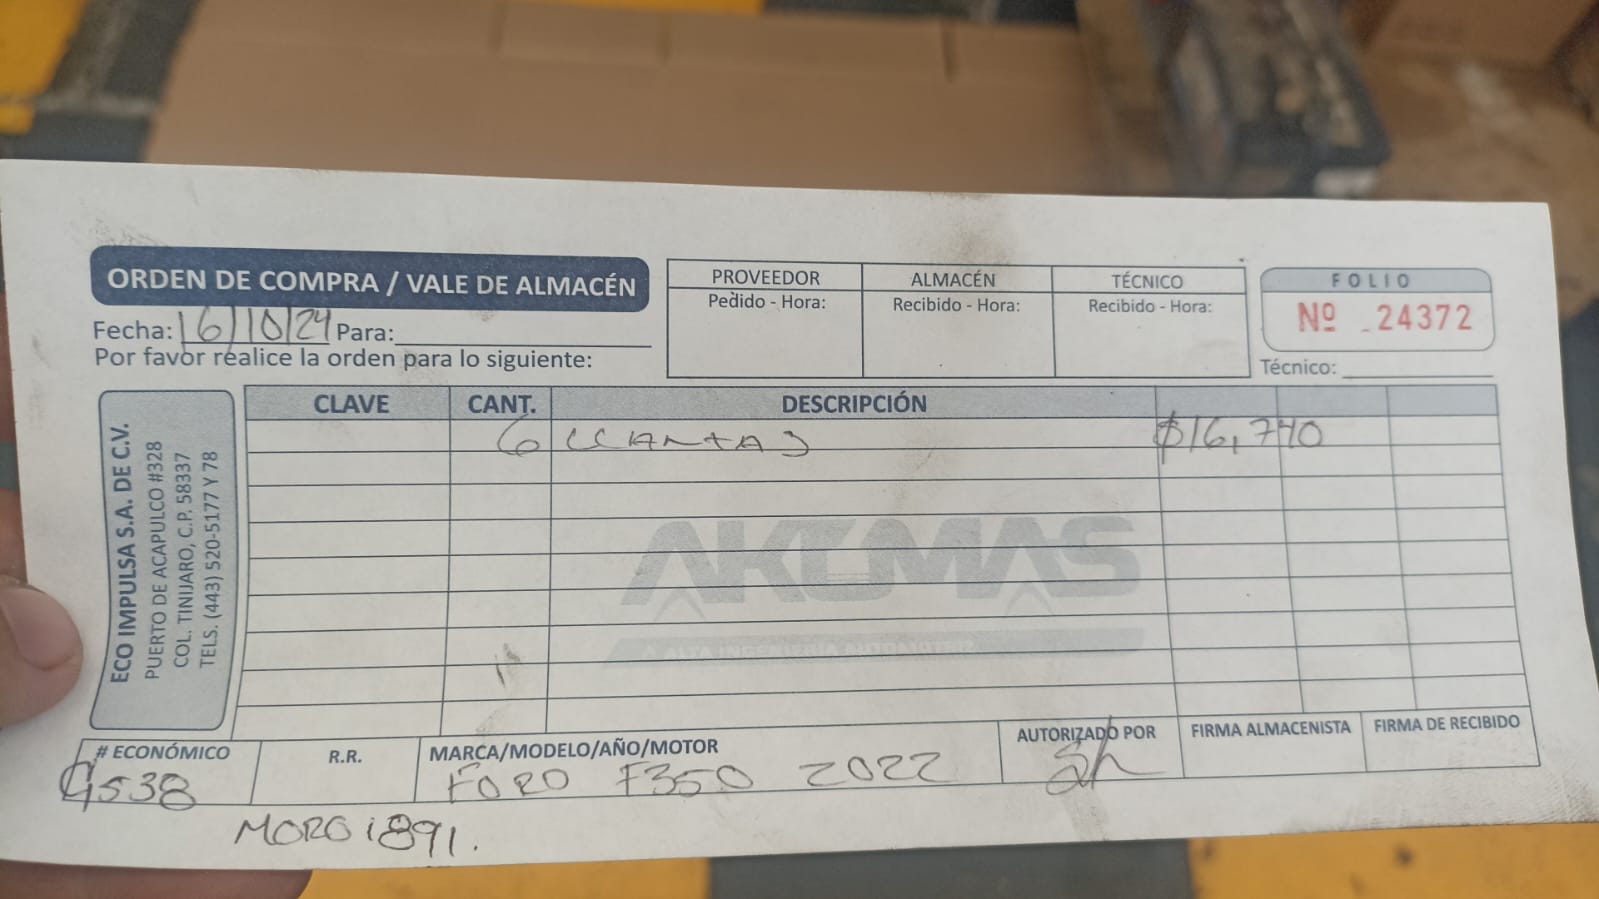 ORDEN DE COMPRA / VALE DE ALMACÉN
Fecha: 16/10/24 Para:
Por favor realice la orden para lo siguiente:
PROVEEDOR ALMACÉN TÉCNICO
Pedido - Hora: Recibido - Hora: Recibido - Hora:
FOLIO
Nº 24372
Técnico:
ECO IMPULSA S.A. DE C.V.
PUERTO DE ACAPULCO #328
COL. TINIJARO, C.P. 58337
TELS. (443) 520-5177 Y 78
CLAVE CANT. DESCRIPCIÓN
6 LLANTAS $16,740
AKOMAS
ALTA INGENIERÍA AUTOMOTRIZ
# ECONÓMICO R.R. MARCA/MODELO/AÑO/MOTOR AUTORIZADO POR FIRMA ALMACENISTA FIRMA DE RECIBIDO
G538 FORD F350 2022
MORO 1891.